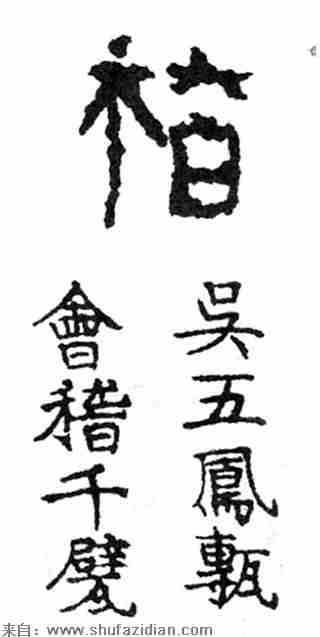 稽
吳五鳳甎
會稽千甓
来自：www.shufazidian.com